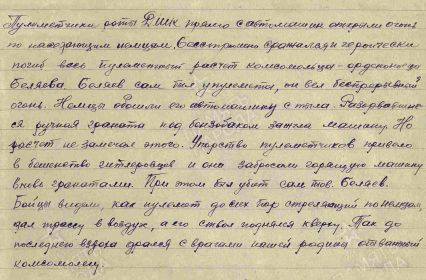 Пулеметчики роты ДШК прямо с автомашин открыли огонь
по наседающим немцам. Бесстрашно сражался и героически
погиб весь пулеметный расчет комсомольца-орденоносца
Беляева. Беляев сам был у пулемета, он вел беспрерывный
огонь. Немцы обошли его автомашину с тыла. Разорвавшая-
ся ручная граната под бензобаком зажгла машину. Но
расчет не замечал этого. Упорство пулеметчиков привело
в бешенство гитлеровцев и они забросали горящую машину
вновь гранатами. При этом был убит сам тов. Беляев.
Бойцы видели, как пулемет до сих пор стрелявший по немцам,
дал трассу в воздух, а его ствол поднялся кверху. Так до
последнего вздоха дрался с врагами нашей родины отважный
комсомолец.